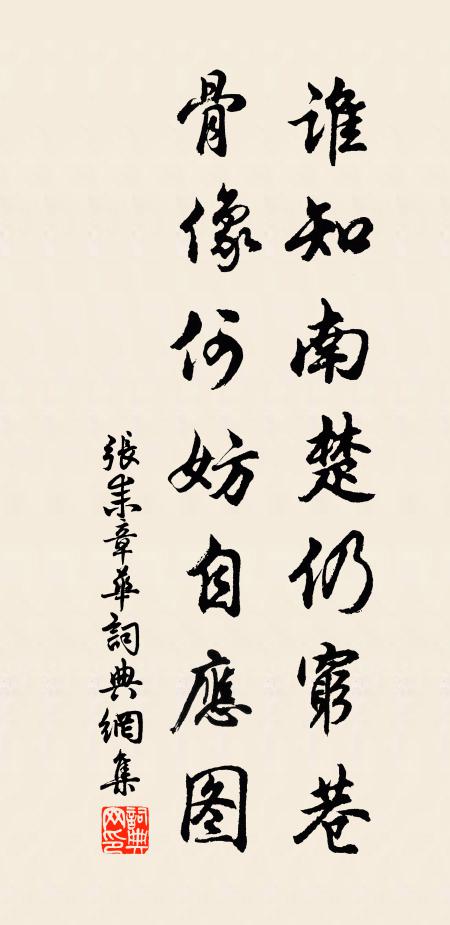 誰知南楚仍窮巷
骨像何妨自應图
張耒章華詞典網集
詞典网印